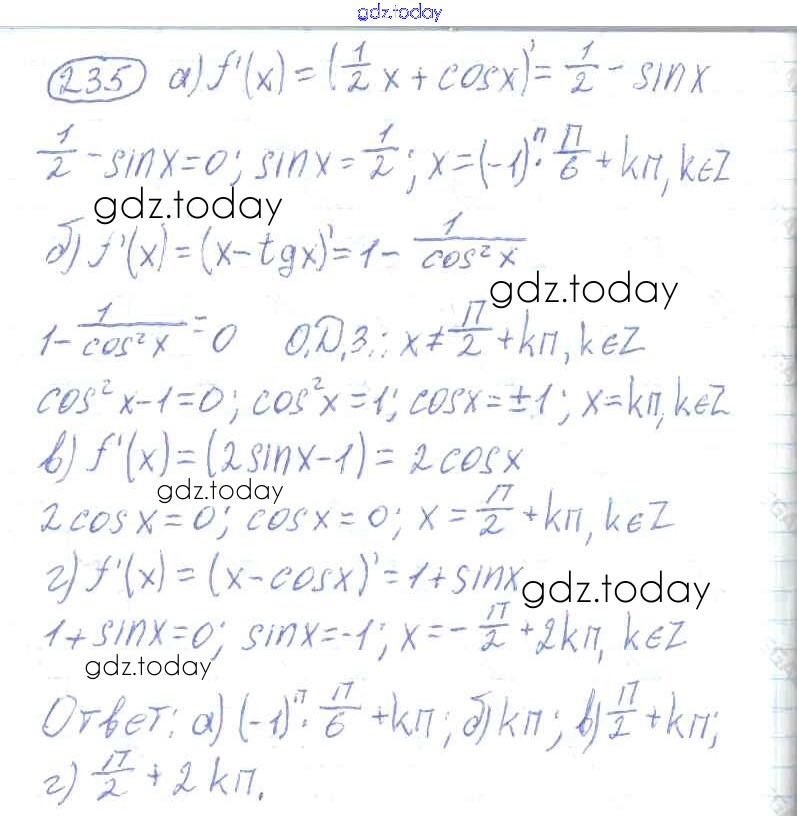 gdz.today
235 а) f'(x) = (1/2 x + cosx)' = 1/2 - sinx
1/2 - sinx = 0; sinx = 1/2; x = (-1)ⁿ · П/6 + kП, k∈Z
gdz.today
б) f'(x) = (x - tgx)' = 1 - 1/cos²x
gdz.today
1 - 1/cos²x = 0 О.Д.З.: x ≠ П/2 + kП, k∈Z
cos²x - 1 = 0; cos²x = 1; cosx = ±1; x = kП, k∈Z
в) f'(x) = (2sinx - 1) = 2cosx
gdz.today
2cosx = 0; cosx = 0; x = П/2 + kП, k∈Z
г) f'(x) = (x - cosx)' = 1 + sinx
gdz.today
1 + sinx = 0; sinx = -1; x = - П/2 + 2kП, k∈Z
gdz.today
Ответ: а) (-1)ⁿ · П/6 + kП; б) kП; в) П/2 + kП;
г) П/2 + 2kП.